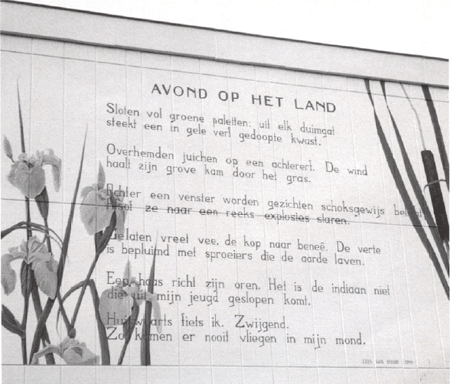 AVOND OP HET LAND
Sloten vol groene paletten: uit elk duimgat
steekt een in gele verf gedoopte kwast.
Overhemden juichen op een achtererf. De wind
haalt zijn grove kam door het gras.
Achter een venster worden gezichten schoksgewijs
ze naar een reeks explosies staren.
Gelaten vreet vee, de kop naar beneê. De verte
is bepluimd met sproeiers die de aarde laven.
Een haas richt zijn oren. Het is de indiaan niet
die uit mijn jeugd geslopen komt.
Huiswaarts fiets ik. Zwijgend.
Zo komen er nooit vliegen in mijn mond.